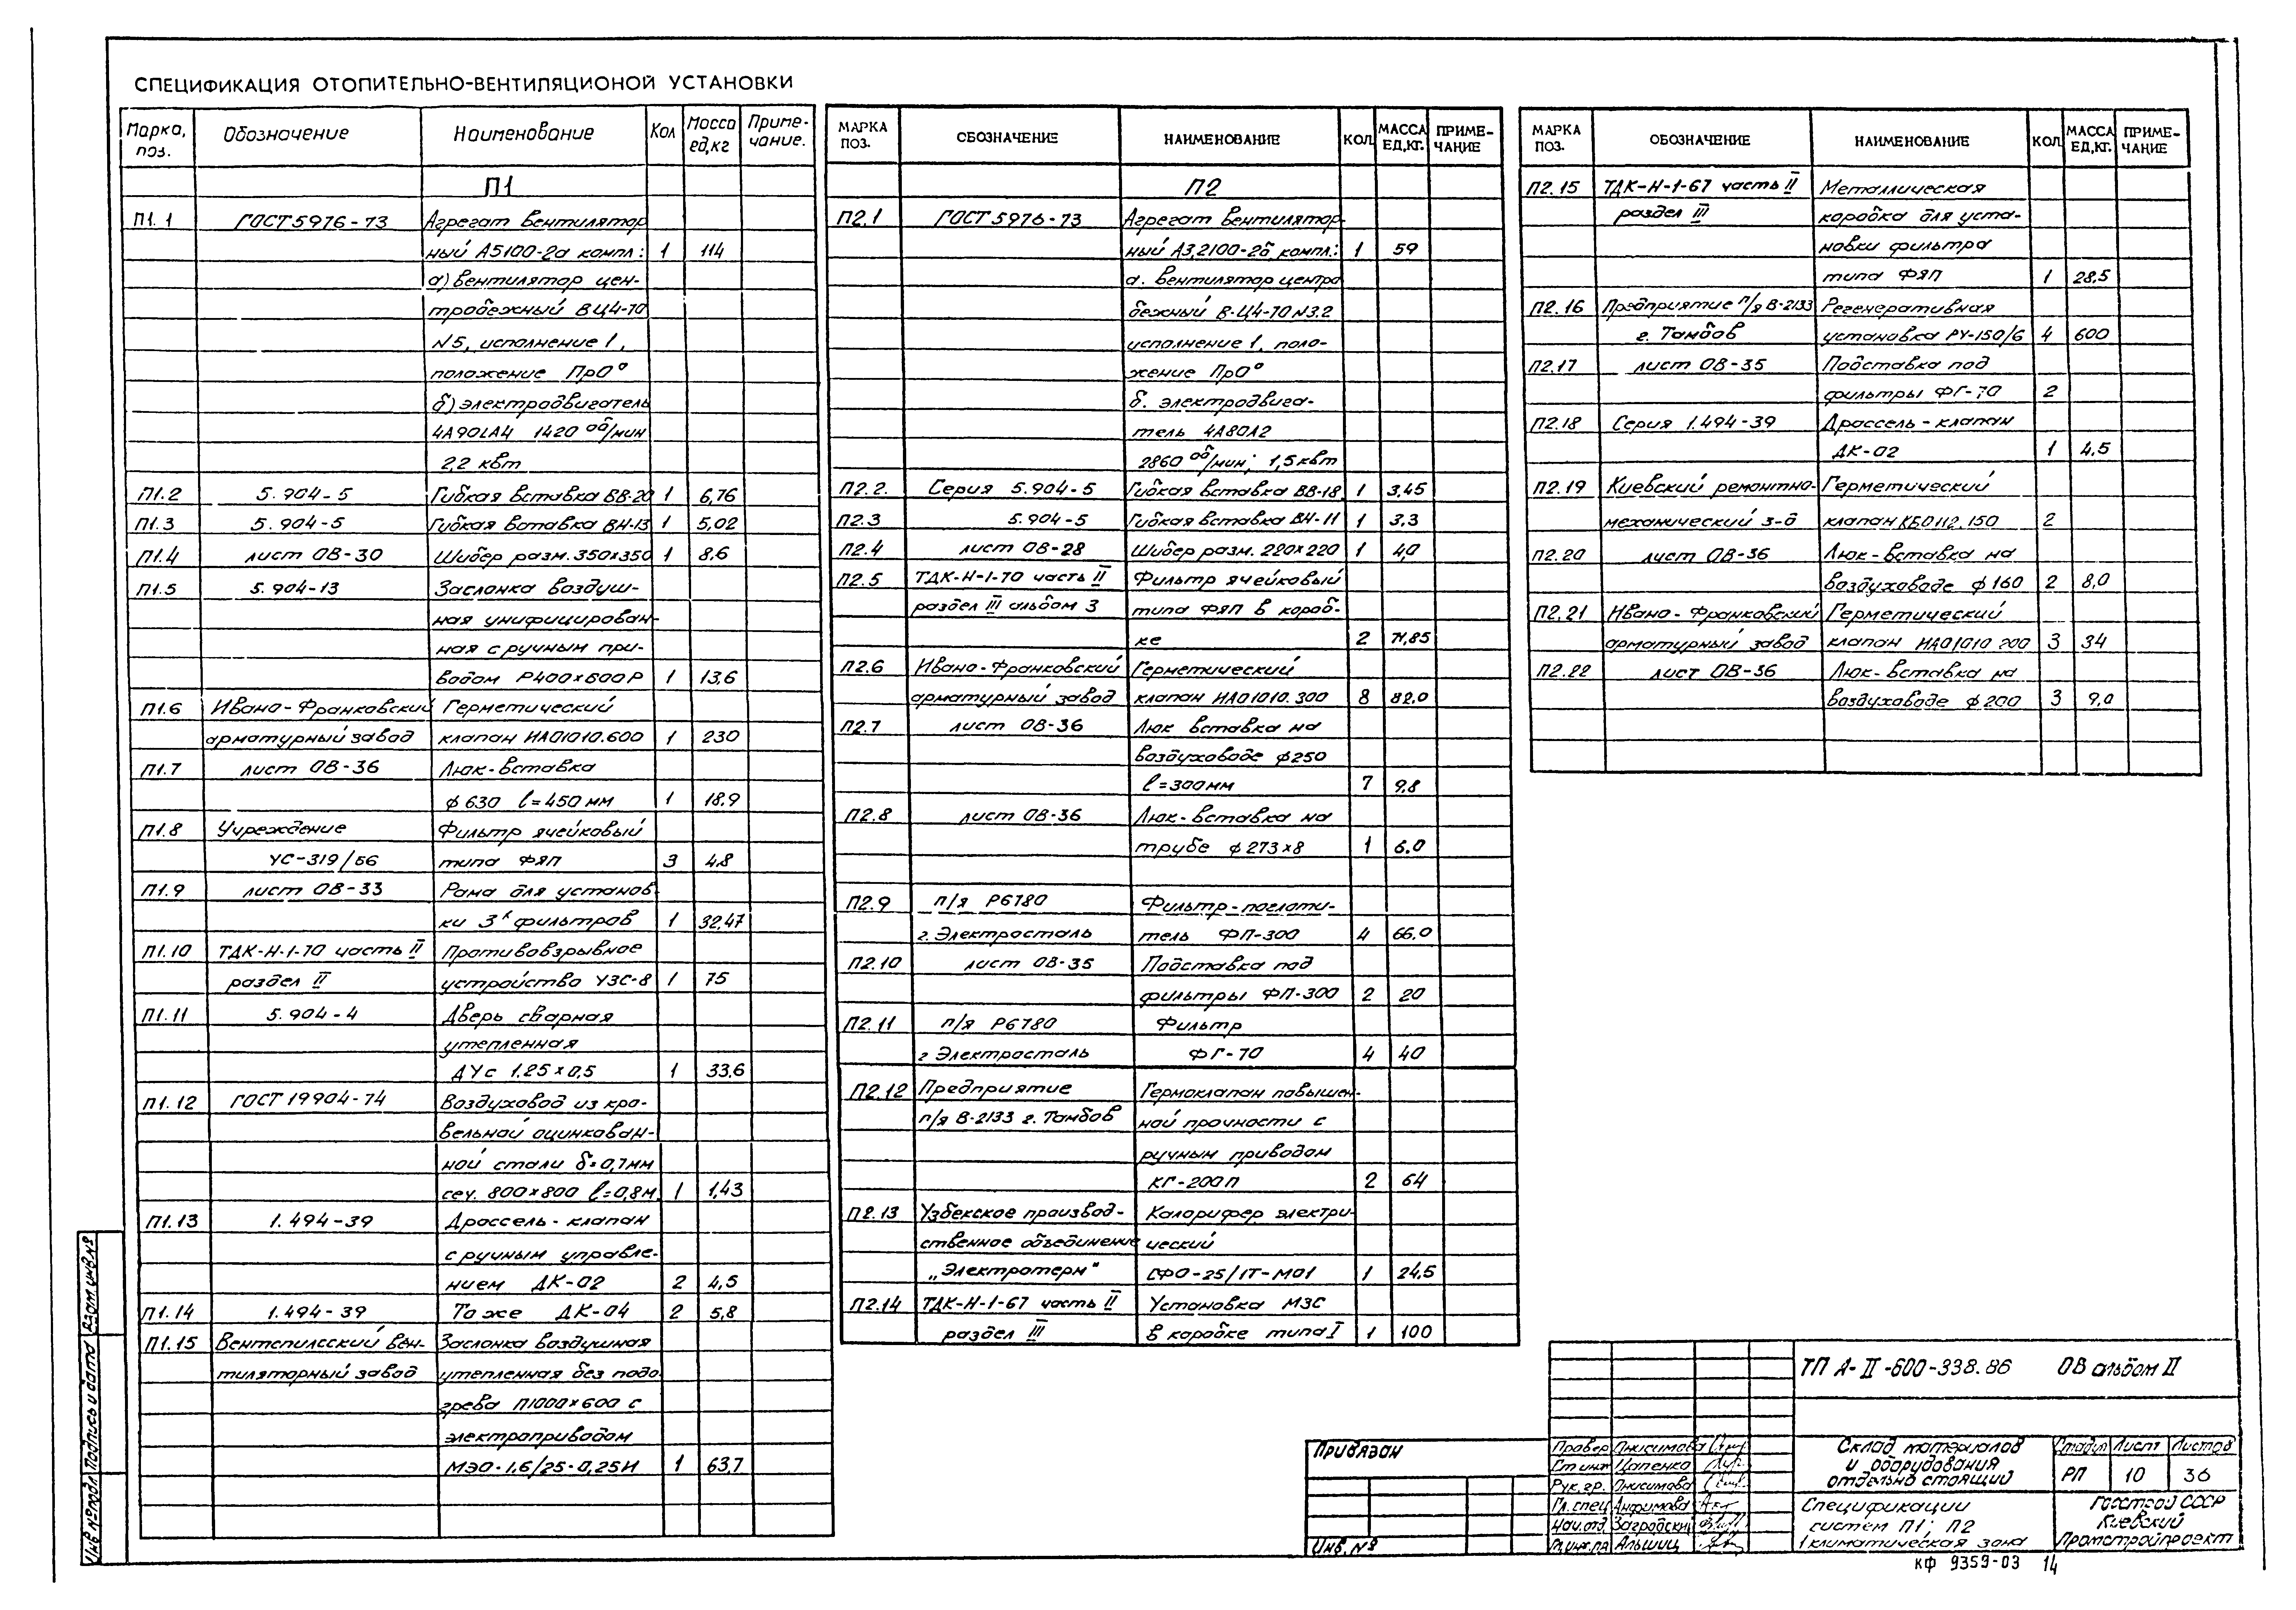 СПЕЦИФИКАЦИЯ ОТОПИТЕЛЬНО-ВЕНТИЛЯЦИОНОЙ УСТАНОВКИ
Марка, поз. Обозначение Наименование Кол Масса ед,кг Приме- чание.
П1
П1.1 ГОСТ5976-73 Агрегат вентилятор
ный А5100-2а компл: 1 114
а) вентилятор цен-
тробежный ВЦ4-70
N5, исполнение 1,
положение Пр0°
б) электродвигатель
4А90LА4 1420 об/мин
2,2 квт
П1.2 5.904-5 Гибкая вставка ВВ-20 1 6,76
П1.3 5.904-5 Гибкая вставка ВН-13 1 5,02
П1.4 лист ОВ-30 Шибер разм.350х350 1 8.6
П1.5 5.904-13 Заслонка воздуш-
ная унифицирован-
ная с ручным при-
водом Р400х600Р 1 13,6
П1.6 Ивано-Франковский Герметический
арматурный завод клапан ИА01010.600 1 230
П1.7 лист ОВ-36 Люк-вставка
ф 630 l=450 мм 1 18.9
П1.8 Учреждение Фильтр ячейковый
УС-319/56 типа ФЯП 3 4,8
П1.9 лист ОВ-33 Рама для установ-
ки 3х фильтров 1 32,47
П1.10 ТДК-Н-1-70 часть II Противовзрывное
раздел II устройство УЗС-8 1 75
П1.11 5.904-4 Дверь сварная
утепленная
ДУс 1.25х0,5 1 33.6
П1.12 ГОСТ 19904-74 Воздуховод из кро-
вельной оцинкован-
ной стали δ=0,7мм
сеч. 800х800 l=0,8м. 1 1,43
П1.13 1.494-39 Дроссель-клапан
с ручным управле-
нием ДК-02 2 4,5
П1.14 1.494-39 То же ДК-04 2 5,8
П1.15 Вентспилсский вен- Заслонка воздушная
тиляторный завод утепленная без подо
грева П1000х600 с
электроприводом
МЭО-1.6/25-0,25И 1 63,7
МАРКА ПОЗ. ОБОЗНАЧЕНИЕ НАИМЕНОВАНИЕ КОЛ МАССА ЕД,КГ. ПРИМЕ- ЧАНИЕ
П2
П2.1 ГОСТ5976-73 Агрегат вентилятор-
ный А3,2100-2б компл: 1 59
а. вентилятор центро
бежный В-Ц4-70 N3.2
исполнение 1, поло-
жение Пр0°
б. электродвига-
тель 4А80А2
2860 об/мин; 1,5квт
П2.2. Серия 5.904-5 Гибкая вставка ВВ-18 1 3,45
П2.3 5.904-5 Гибкая вставка ВН-11 1 3.3
П2.4 лист ОВ-28 Шибер разм. 220х220 1 4,0
П2.5 ТДК-Н-1-70 часть II Фильтр ячейковый
раздел III альбом 3 типа ФЯП в короб-
ке 2 71,85
П2.6 Ивано-Франковский Герметический
арматурный завод клапан ИА01010.300 8 82.0
П2.7 лист ОВ-36 Люк вставка на
воздуховоде ф250
l=300мм 7 9,8
П2.8 лист ОВ-36 Люк-вставка на
трубе ф273х8 1 6.0
П2.9 п/я Р6780 Фильтр-поглоти-
г. Электросталь тель ФП-300 4 66.0
П2.10 лист ОВ-35 Подставка под
фильтры ФП-300 2 20
П2.11 п/я Р6780 Фильтр
г Электросталь ФГ-70 4 40
П2.12 Предприятие Гермоклапан повышен-
п/я В-2133 г. Тамбов ной прочности с
ручным приводом
КГ-200П 2 64
П2.13 Узбекское производ- Калорифер электри-
ственное объединение ческий
„Электротерм" СФО-25/1Т-М01 1 24,5
П2.14 ТДК-Н-1-67 часть II Установка МЗС
раздел III в коробке типа I 1 100
МАРКА ПОЗ. ОБОЗНАЧЕНИЕ НАИМЕНОВАНИЕ КОЛ МАССА ЕД,КГ. ПРИМЕ- ЧАНИЕ
П2.15 ТДК-Н-1-67 часть II Металлическая
раздел III коробка для уста-
новки фильтра
типа ФЯП 1 28,5
П2.16 Предприятие п/я В-2133 Регенеративная
г. Тамбов установка РУ-150/6 4 600
П2.17 лист ОВ-35 Подставка под
фильтры ФГ-70 2
П2.18 Серия 1.494-39 Дроссель-клапан
ДК-02 1 4,5
П2.19 Киевский ремонтно- Герметический
механический з-д клапан КБ0112.150 2
П2.20 лист ОВ-36 Люк-вставка на
воздуховоде ф160 2 8,0
П2.21 Ивано-Франковский Герметический
арматурный завод клапан ИА01010 200 3 34
П2.22 лист ОВ-36 Люк-вставка на
воздуховоде ф200 3 9,0
Взам.инв.№
Подпись и дата
Инв №подл
Привязан
Инв.№
ТП А-II-600-338.86 ОВ альбом II
Провер Онисимова
Ст инж Цапенко
Рук.гр. Онисимова
Гл.спец Анфимова
Нач.отд Загродский
Гл.инж.пр Альшиц
Склад материалов
и оборудования
отдельно стоящий
Стадия Лист Листов
РП 10 36
Спецификации
систем П1; П2
1 климатическая зона
Госстрой СССР
Киевский
Промстройпроект
КФ 9359-03 14